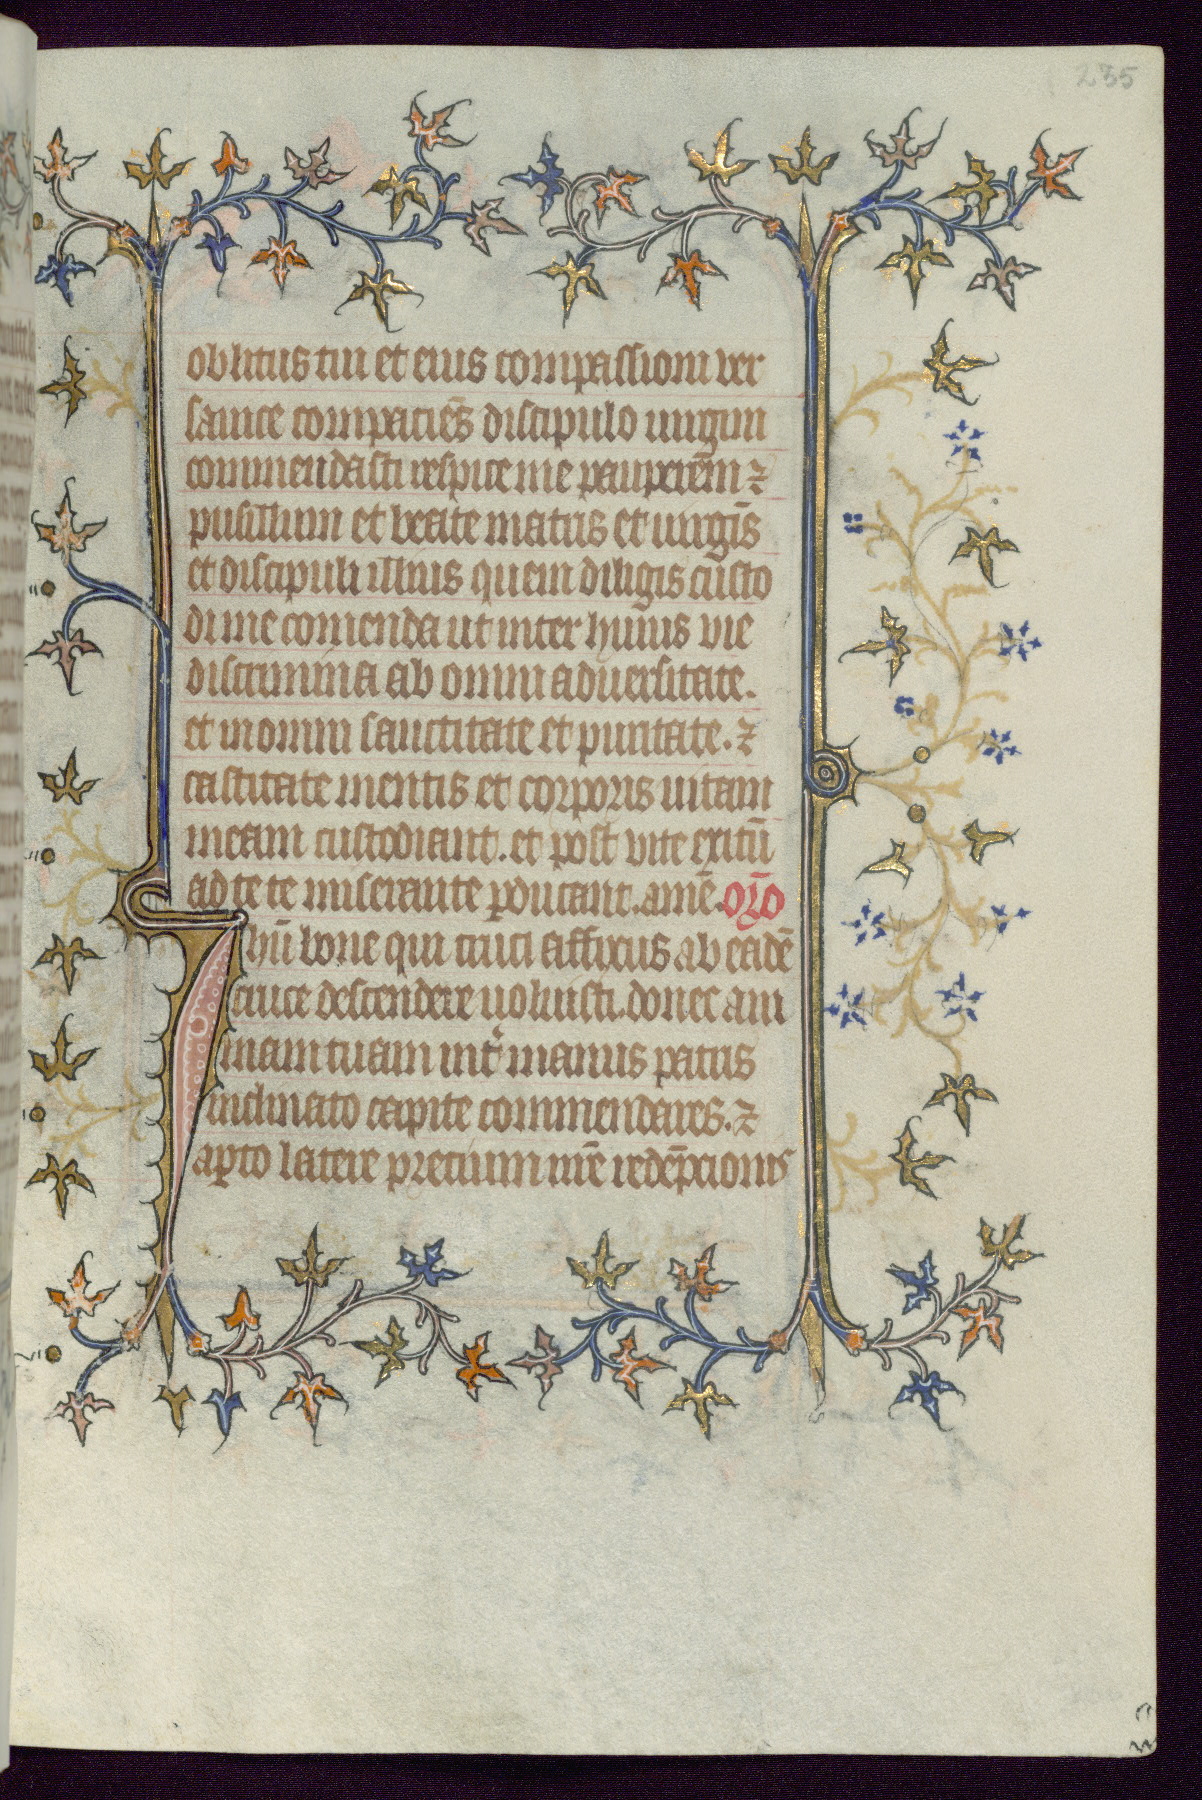 235
oblitus tui et eius compassioni ver
sance compaciēs discipulo uirgini
commendasti respice me pauperē m ⁊
pusillum et beate matris et uirgīs
et discipuli illius quem diligis custo
di me comenda ut inter huius vie
discrimina ab omni aduersitate.
et in omni sanctitate et puritate. ⁊
castitate mentis et corporis uitam
meam custodiant. et post vite exitū
ad te te miserante pducant. amē. orō
Ihū bone qui cruci affixus ab eadē
cruce descendere noluisti. donec ani
mam tuam int̄ manus patris
inclinato capite commendares. ⁊
apto latere precium nrē redēpcionis